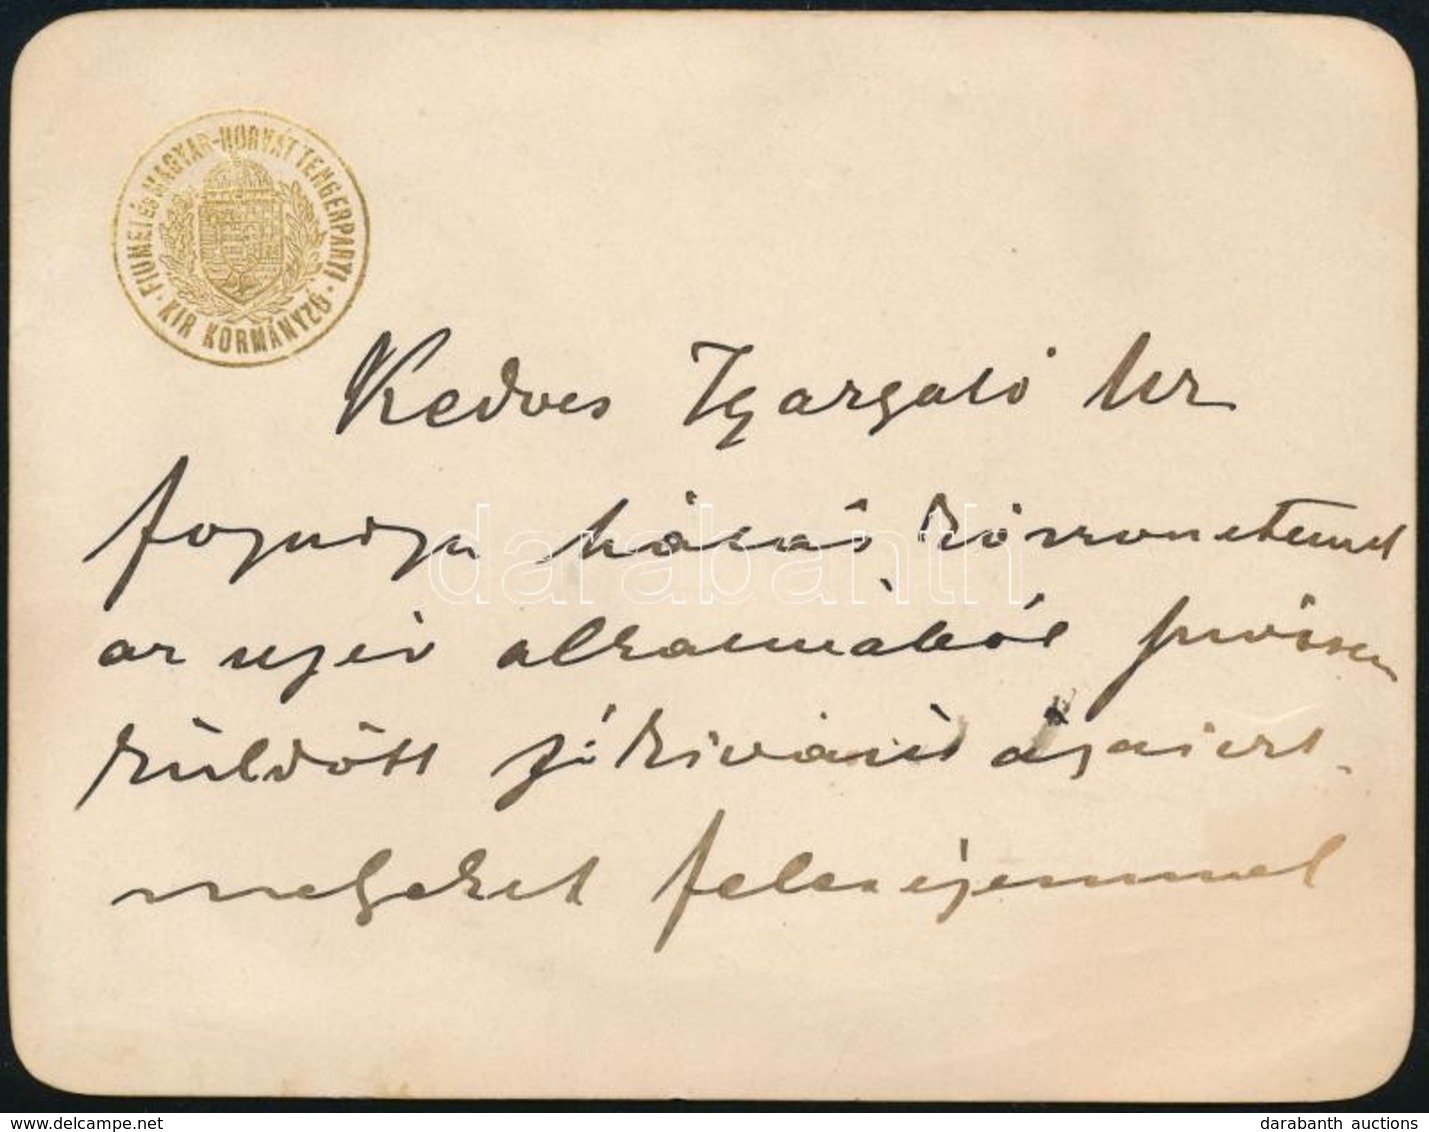 FIUMEI ÉS MAGYAR-HORVÁT TENGERPARTI
KIR KORMÁNYZÓ
Kedves Igazgató Ur
fogadja hálás köszönetemet
az ujév alkalmából szívesen
küldött jókivánságaiért
melyeket
darabanth
www.delcampe.net
darabanth auctions